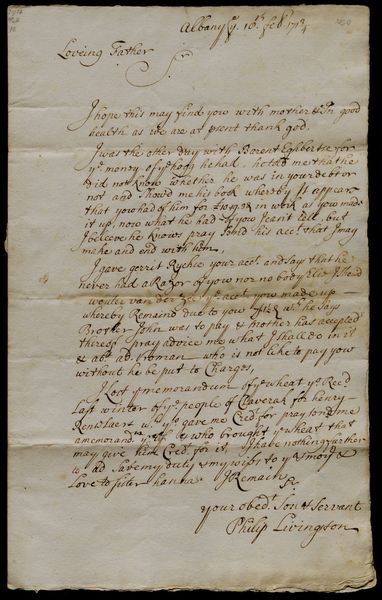 Albany ye. 16th feb. 17
Loveing Father
Sr
I hope this may find you with mother & in good
health as we are at present thank god.
I was the other day with Barent Eghbertse for
ye. money of ye hogg he had. he told me that he
did not know whether he was in your debt or
not and show'd me his book whereby it appear
that you had of him for in work as you made
it up, now what he had of you I can't tell, but
I beleeve he knows pray send his acct. that I may
make and end with him.
I gave gerrit Rychie your acct. and says that he
never had a Razor of you nor no body else I send
wouter van der Zee ye. acct. you made up
whereby Remains due to you wch. he says
Brother John was to pay & mother has accepted
thereof I pray advice me what I shall do in it
& abt. ad. who is not like to pay you
without he be put to Charges.
I Lost ye memorandum of ye wheat yt. Recd.
Last winter of ye. people of Claverak for henry
Renslaert wch. you gave me Cred. for pray send me
a memorand. who brought ye wheat that
may give him Cred. for it. I have nothing further
to ad save my duty & my wifes to you & mor. &
Love to sister hanna I Remain
Your obedt. Son & Servant
Philip Livingston